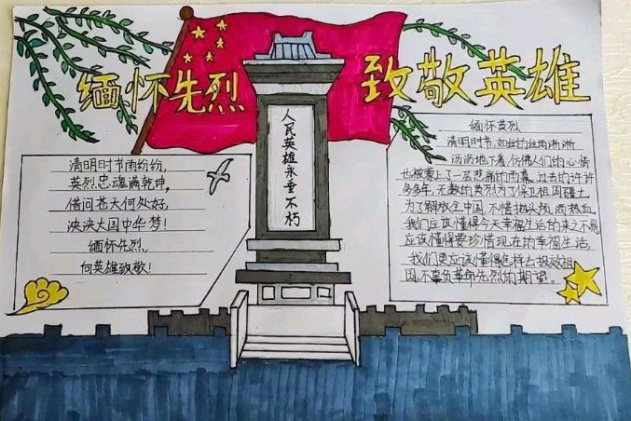 缅怀先烈 致敬英雄
人民英雄永垂不朽
清明时节雨纷纷,
英烈忠魂满乾坤,
借问苍天何处好,
泱泱大国中华梦!
缅怀先烈,
向英雄致敬!
缅怀英烈
清明时节,如丝的丝雨淅淅
沥沥地下着,仿佛人们的心情
也被蒙上了一层悲痛的雨幕。过去的许许
多多年,无数的英烈为了保卫祖国疆土,
为了解放全中国,不惜抛头颅,洒热血。
我们应该懂得今天幸福生活的来之不易
应该懂得要珍惜现在的幸福生活,
我们更应该懂得怎样去报效祖
国,不辜负革命先烈的期望。